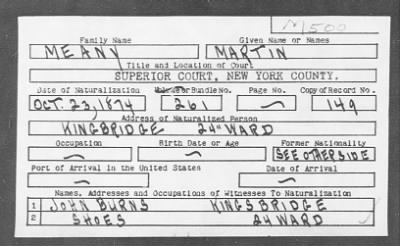 M500
Family Name Given Name or Names
MEANY MARTIN
Title and Location of Court
SUPERIOR COURT, NEW YORK COUNTY.
Date of Naturalization Volume or Bundle No. Page No. Copy of Record No.
OCT. 23, 1874 261 — 149
Address of Naturalized Person
KINGBRIDGE 24" WARD
Occupation Birth Date or Age Former Nationality
— — SEE OTHERSIDE
Port of Arrival in the United States Date of Arrival
— —
Names, Addresses and Occupations of Witnesses To Naturalization
1 JOHN BURNS KINGSBRIDGE
2 SHOES 24 WARD